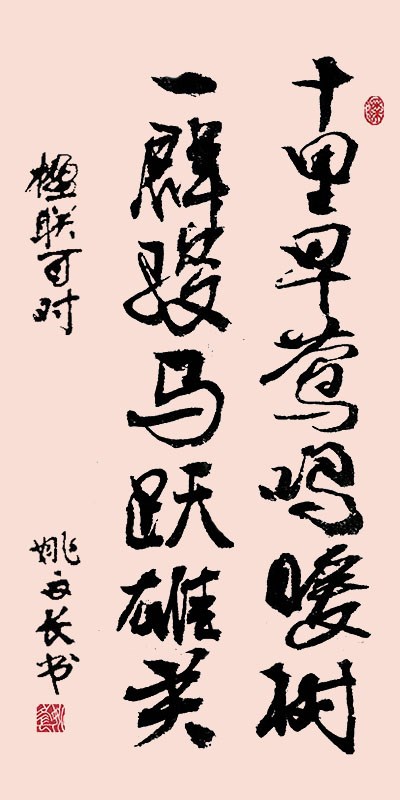 十里早莺鸣暖树
一群骏马跃雄关
楹联可对
姚 长书